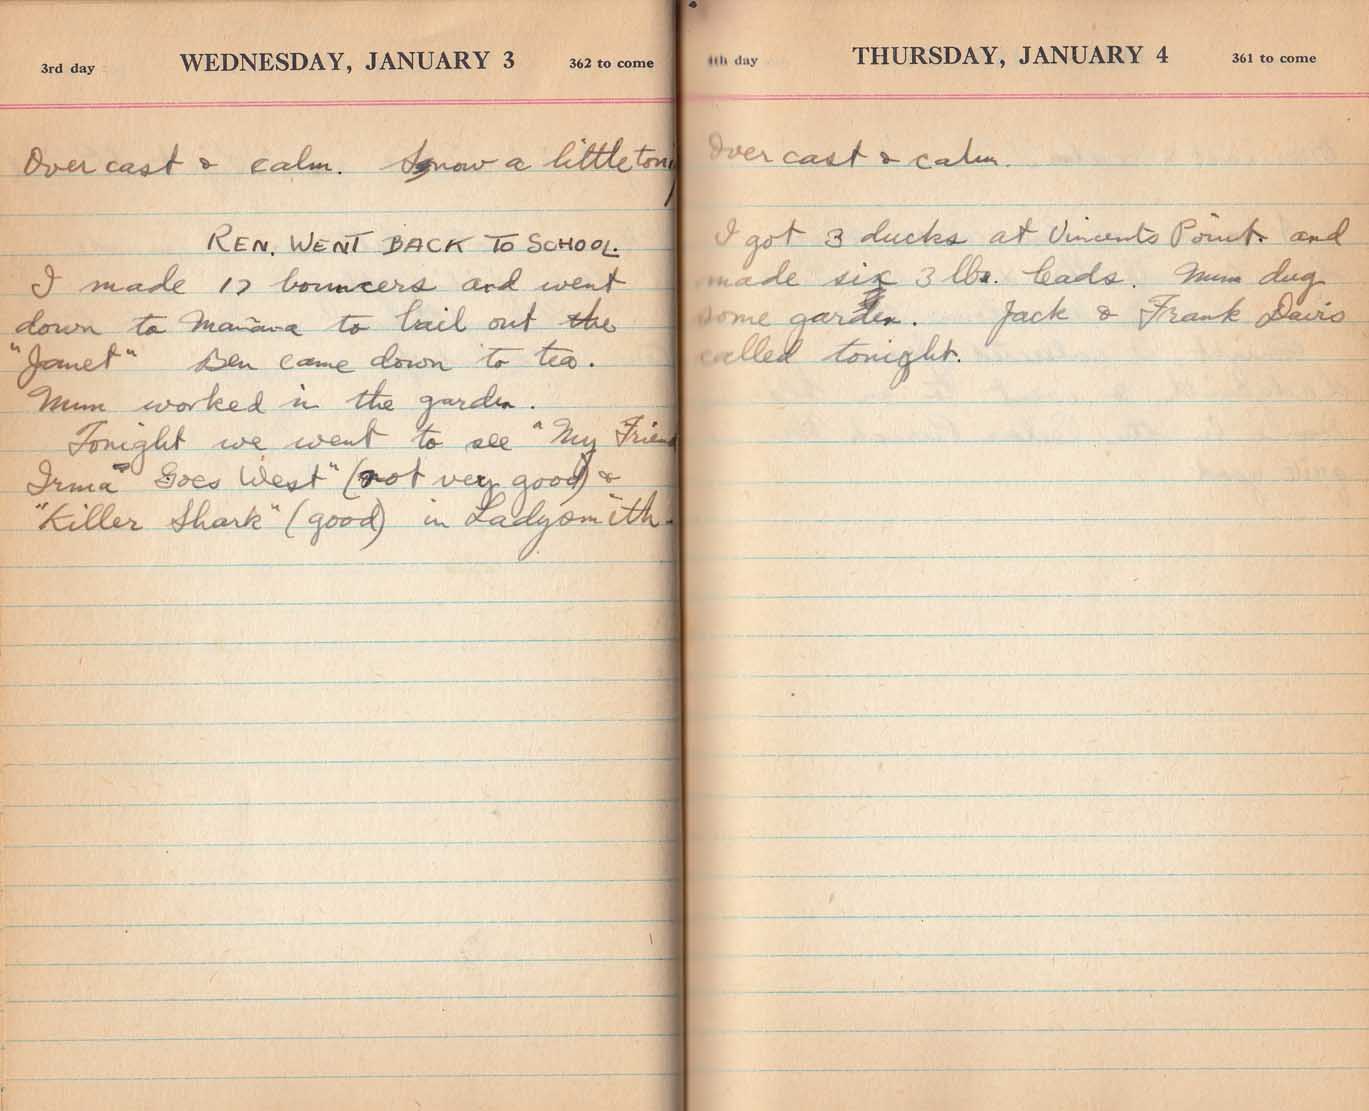 3rd day WEDNESDAY, JANUARY 3 362 to come
Overcast & calm. Snow a little
REN. WENT BACK TO SCHOOL.
I made 17 bouncers and went
down to Mañana to bail out the
"Janet" Ben came down to tea.
Mum worked in the garden.
Tonight we went to see "My Friend
Irma Goes West" (not very good) &
"Killer Shark" (good) in Ladysmith.
4th day THURSDAY, JANUARY 4 361 to come
Overcast & calm.
I got 3 ducks at Vincents Point. and
made six 3 lbs. leads. Mum dug
some garden. Jack & Frank Davis
called tonight.